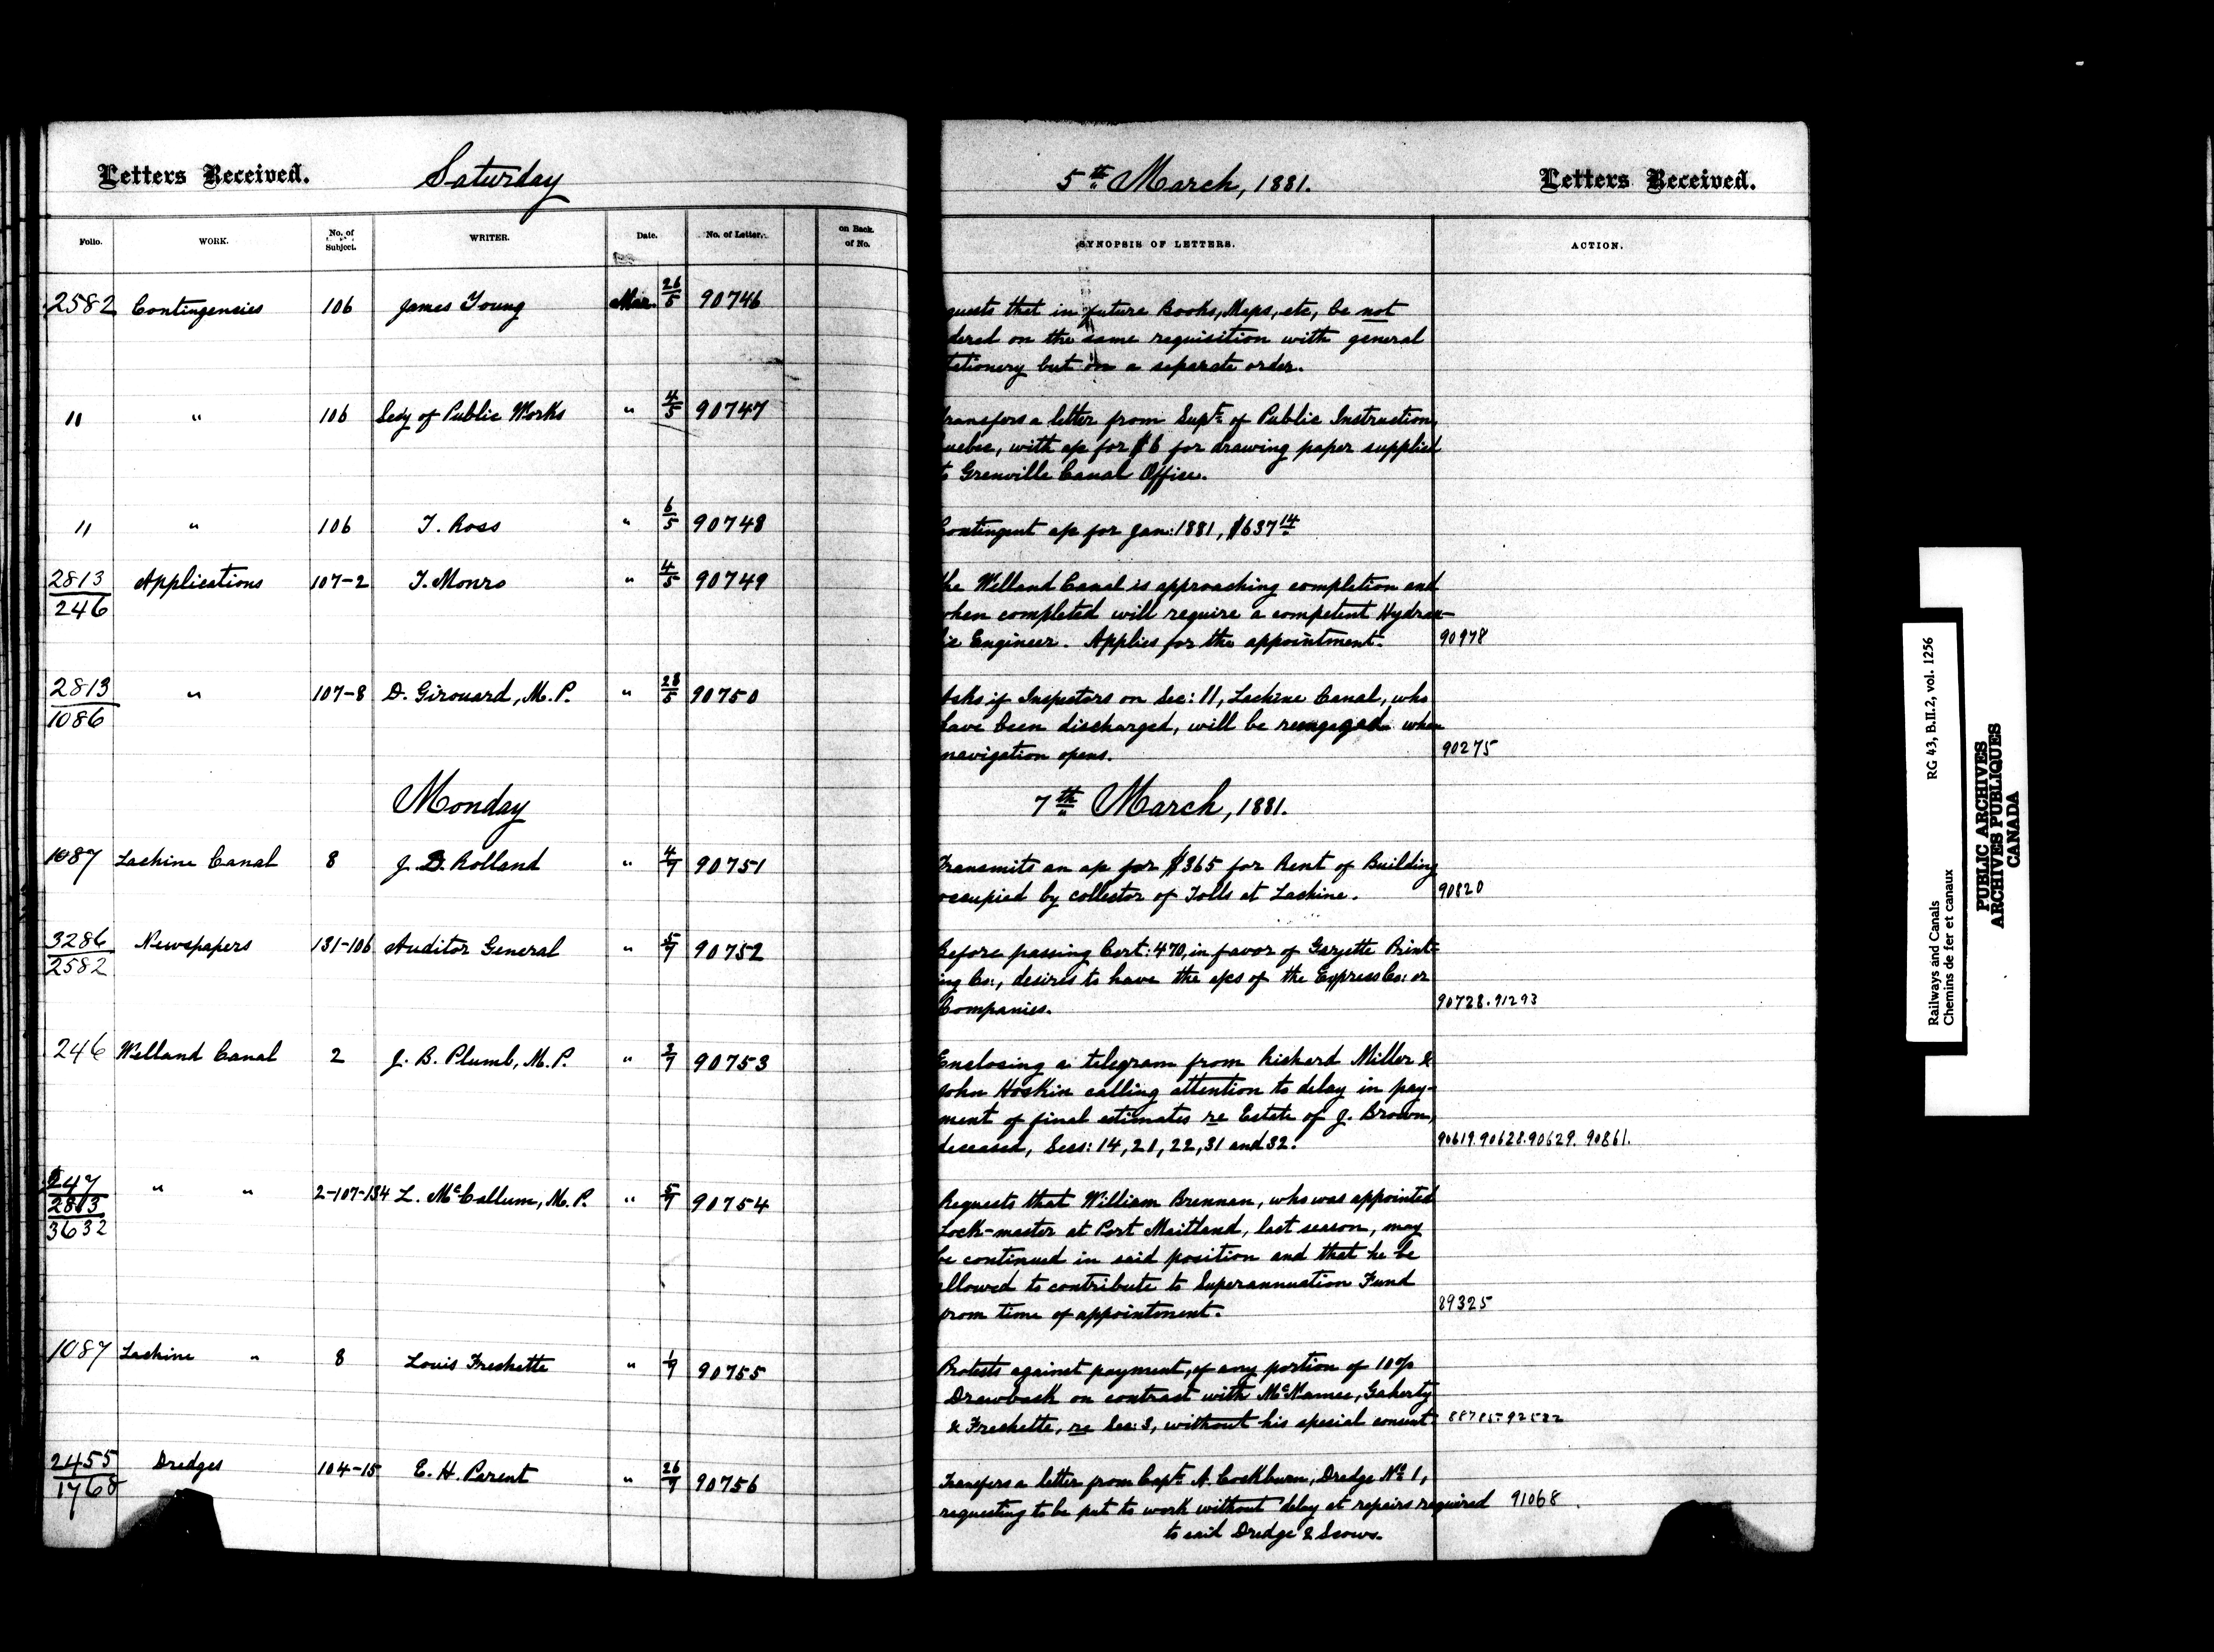 Letters Received.
Saturday
5th March, 1881.
Letters Received.
Folio. WORK. No. of Subject. WRITER. Date. No. of Letter. on Back of No. SYNOPSIS OF LETTERS. ACTION.
2582 Contingencies 106 James Young Mar. 26/5 90746
quests that in future Books, Maps, etc, be not
dered on the same requisition with general
tationery but on a separate order.
" " 106 Secy of Public Works " 4/5 90747
transfers a letter from Supt. of Public Instruction,
uebec, with a/c for $6 for drawing paper supplied
to Grenville Canal Office.
" " 106 T. Ross " 6/5 90748
Contingent a/c for Jan: 1881, $637 14
2813/246 Applications 107-2 T. Monro " 4/5 90749
the Welland Canal is approaching completion and
when completed will require a competent Hydrau-
lic Engineer. Applies for the appointment. 90978
2813/1086 " 107-8 D. Girouard, M.P. " 28/5 90750
Asks if Inspectors on Sec: 11, Lachine Canal, who
have been discharged, will be reengaged when
navigation opens. 90275
Monday
7th March, 1881.
1087 Lachine Canal 8 J. D. Rolland " 4/7 90751
Transmits an a/c for $365 for Rent of Building
occupied by collector of Tolls at Lachine. 90820
3286/2582 Newspapers 131-106 Auditor General " 5/7 90752
Before passing Cert: 470, in favor of Gazette Print-
ing Co:, desires to have the a/cs of the Express Co: or
Companies. 90728. 91293
246 Welland Canal 2 J. B. Plumb, M.P. " 3/7 90753
Enclosing a telegram from Richard Miller &
John Hoskin calling attention to delay in pay-
ment of final estimates re Estate of J. Brown,
deceased, Secs: 14, 21, 22, 31 and 32. 90619. 90628. 90629. 90861.
247/2813/3632 " " 2-107-134 L. McCallum, M.P. " 5/7 90754
Requests that William Brennan, who was appointed
Lock-master at Port Maitland, last season, may
be continued in said position and that he be
allowed to contribute to Superannuation Fund
from time of appointment. 89325
1087 Lachine " 8 Louis Frechette " 1/7 90755
Protests against payment, of any portion of 10%
Drawback on contract with McNamee, Gaherty
& Frechette, re Sec: 3, without his special consent.
2455/1768 Dredges 104-15 E. H. Parent " 26/7 90756
Transfers a letter from Capt. A. Cockburn, Dredge No. 1,
requesting to be put to work without delay at repairs required 91068
to said Dredge & Scows.
Railways and Canals RG 43, B.II.2, vol. 1256
Chemins de fer et canaux
PUBLIC ARCHIVES
ARCHIVES PUBLIQUES
CANADA